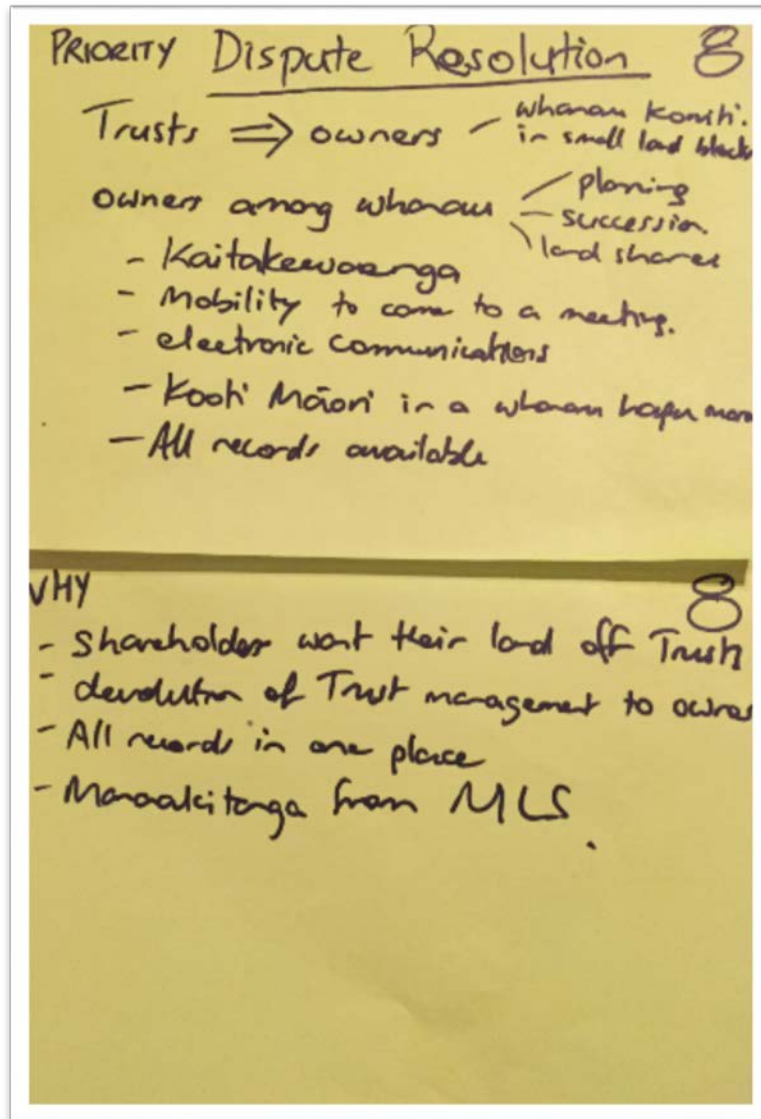 PRIORITY Dispute Resolution 8
Trusts ⇒ owners – whanau Komiti.
in small land block
owners among whanau / planning
– succession.
\ land shares
- Kaitakewaenga
- Mobility to come to a meeting.
- electronic communications
- Kooti Māori in a whanau hapu mara
- All records available
WHY 8
- Shareholders want their land off Trusts
- devolution of Trust management to owner
- All records in one place
- Manaakitanga from MLS.